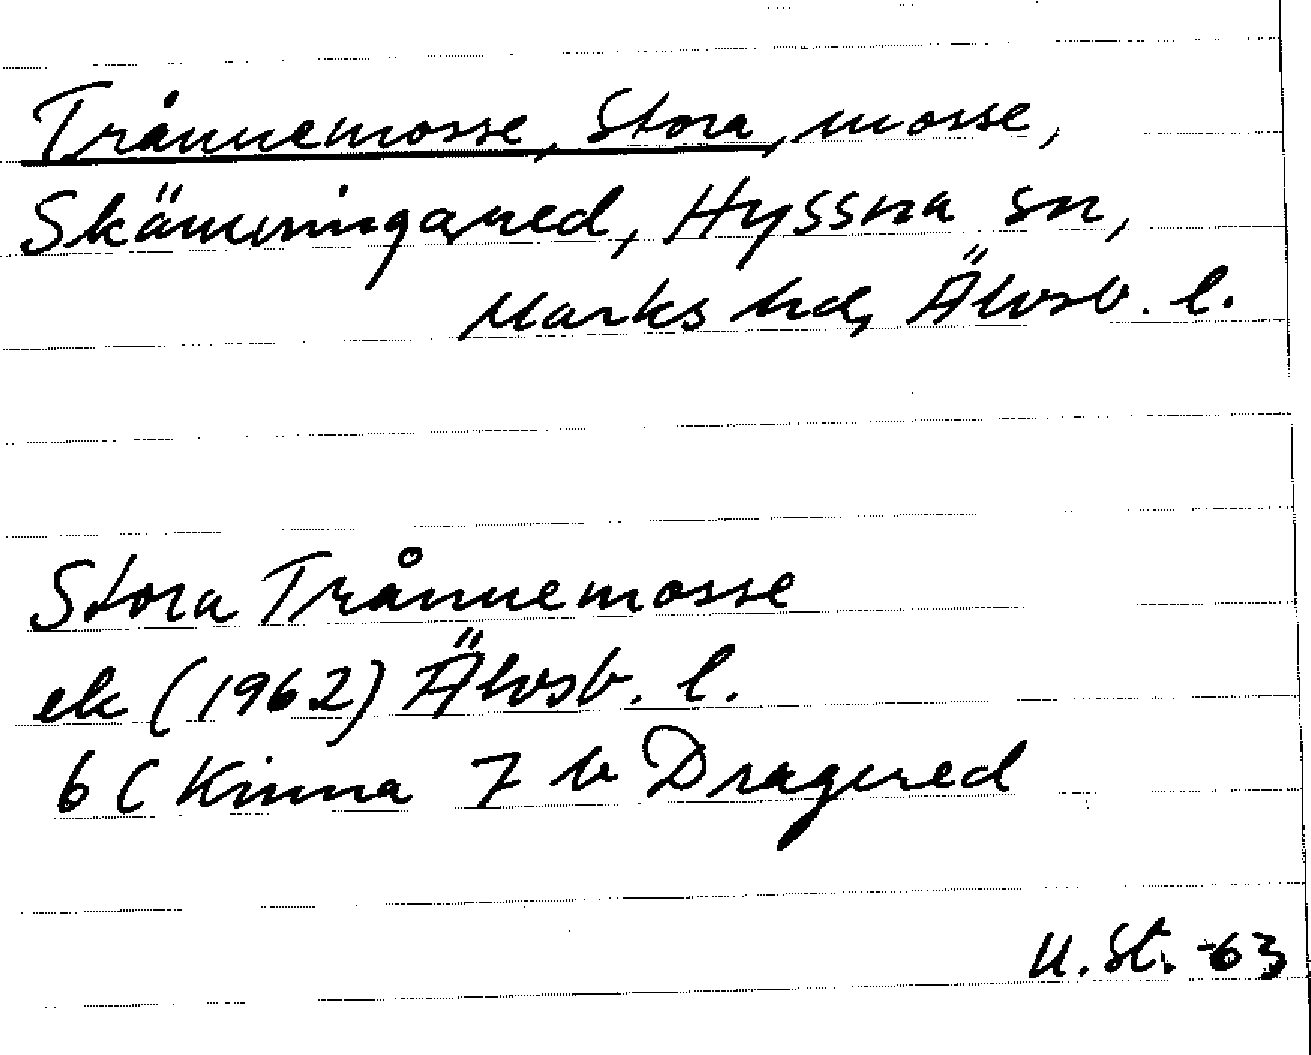 Trånnemosse, Stora, mosse,
Skämningared, Hyssna sn,
Marks hd, Älvsb. l.
Stora Trånnemosse
ek (1962) Älvsb. l.
6 C Kinna 7 b Dragered
U. St. -63